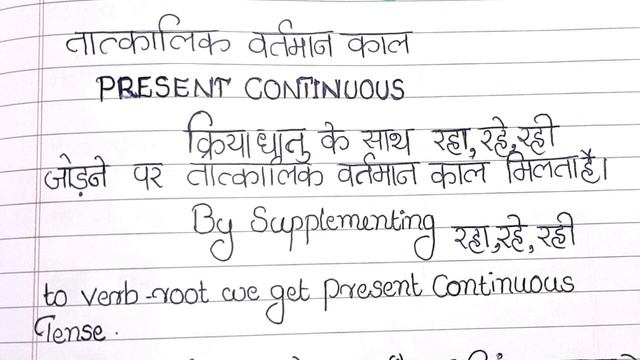 तात्कालिक वर्तमान काल
PRESENT CONTINUOUS
क्रियाधातु के साथ रहा, रहे, रही
जोड़ने पर तात्कालिक वर्तमान काल मिलता है।
By Supplementing रहा, रहे, रही
to verb-root we get present Continuous
Tense.